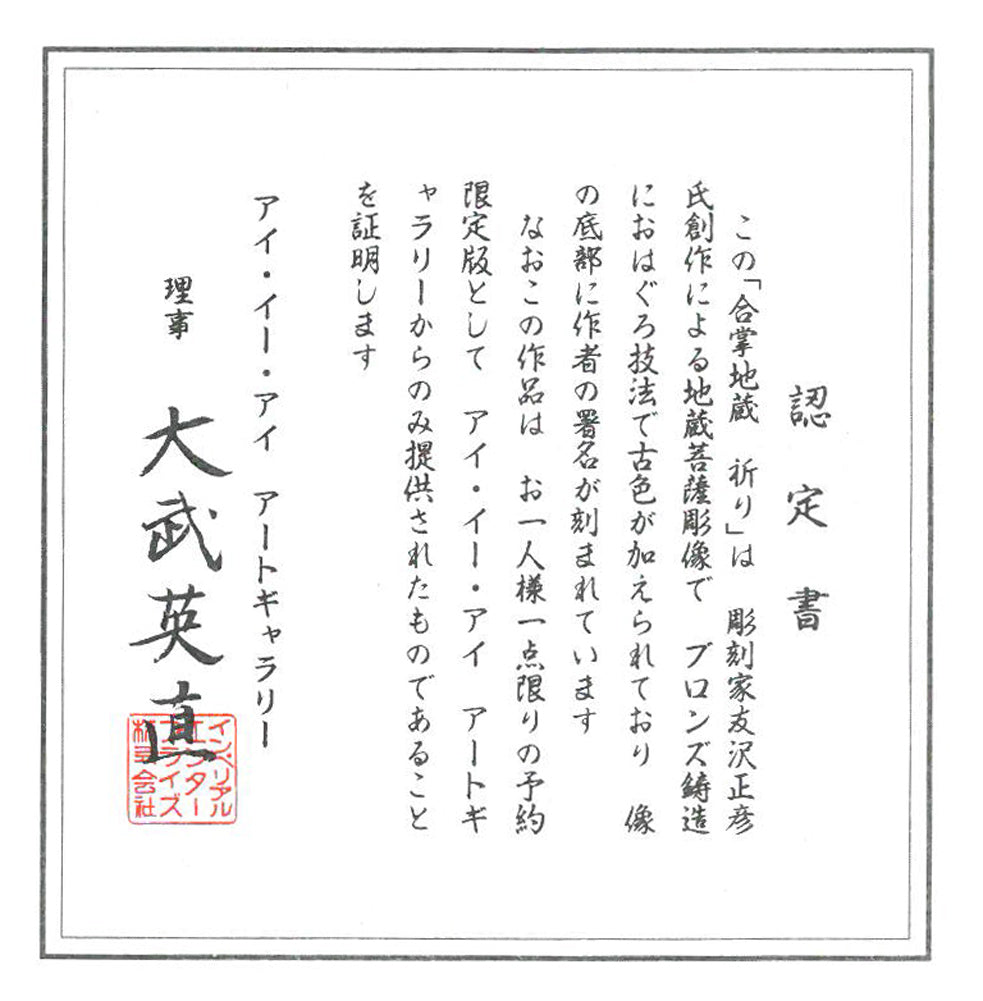 認定書
この「合掌地蔵　祈り」は　彫刻家友沢正彦
氏創作による地蔵菩薩彫像で　ブロンズ鋳造
におはぐろ技法で古色が加えられており　像
の底部に作者の署名が刻まれています
なおこの作品は　お一人様一点限りの予約
限定版として　アイ・イー・アイ　アートギ
ャラリーからのみ提供されたものであること
を証明します
アイ・イー・アイ　アートギャラリー
理事　大武英直
インペリアル
エンター
プライズ
株式会社